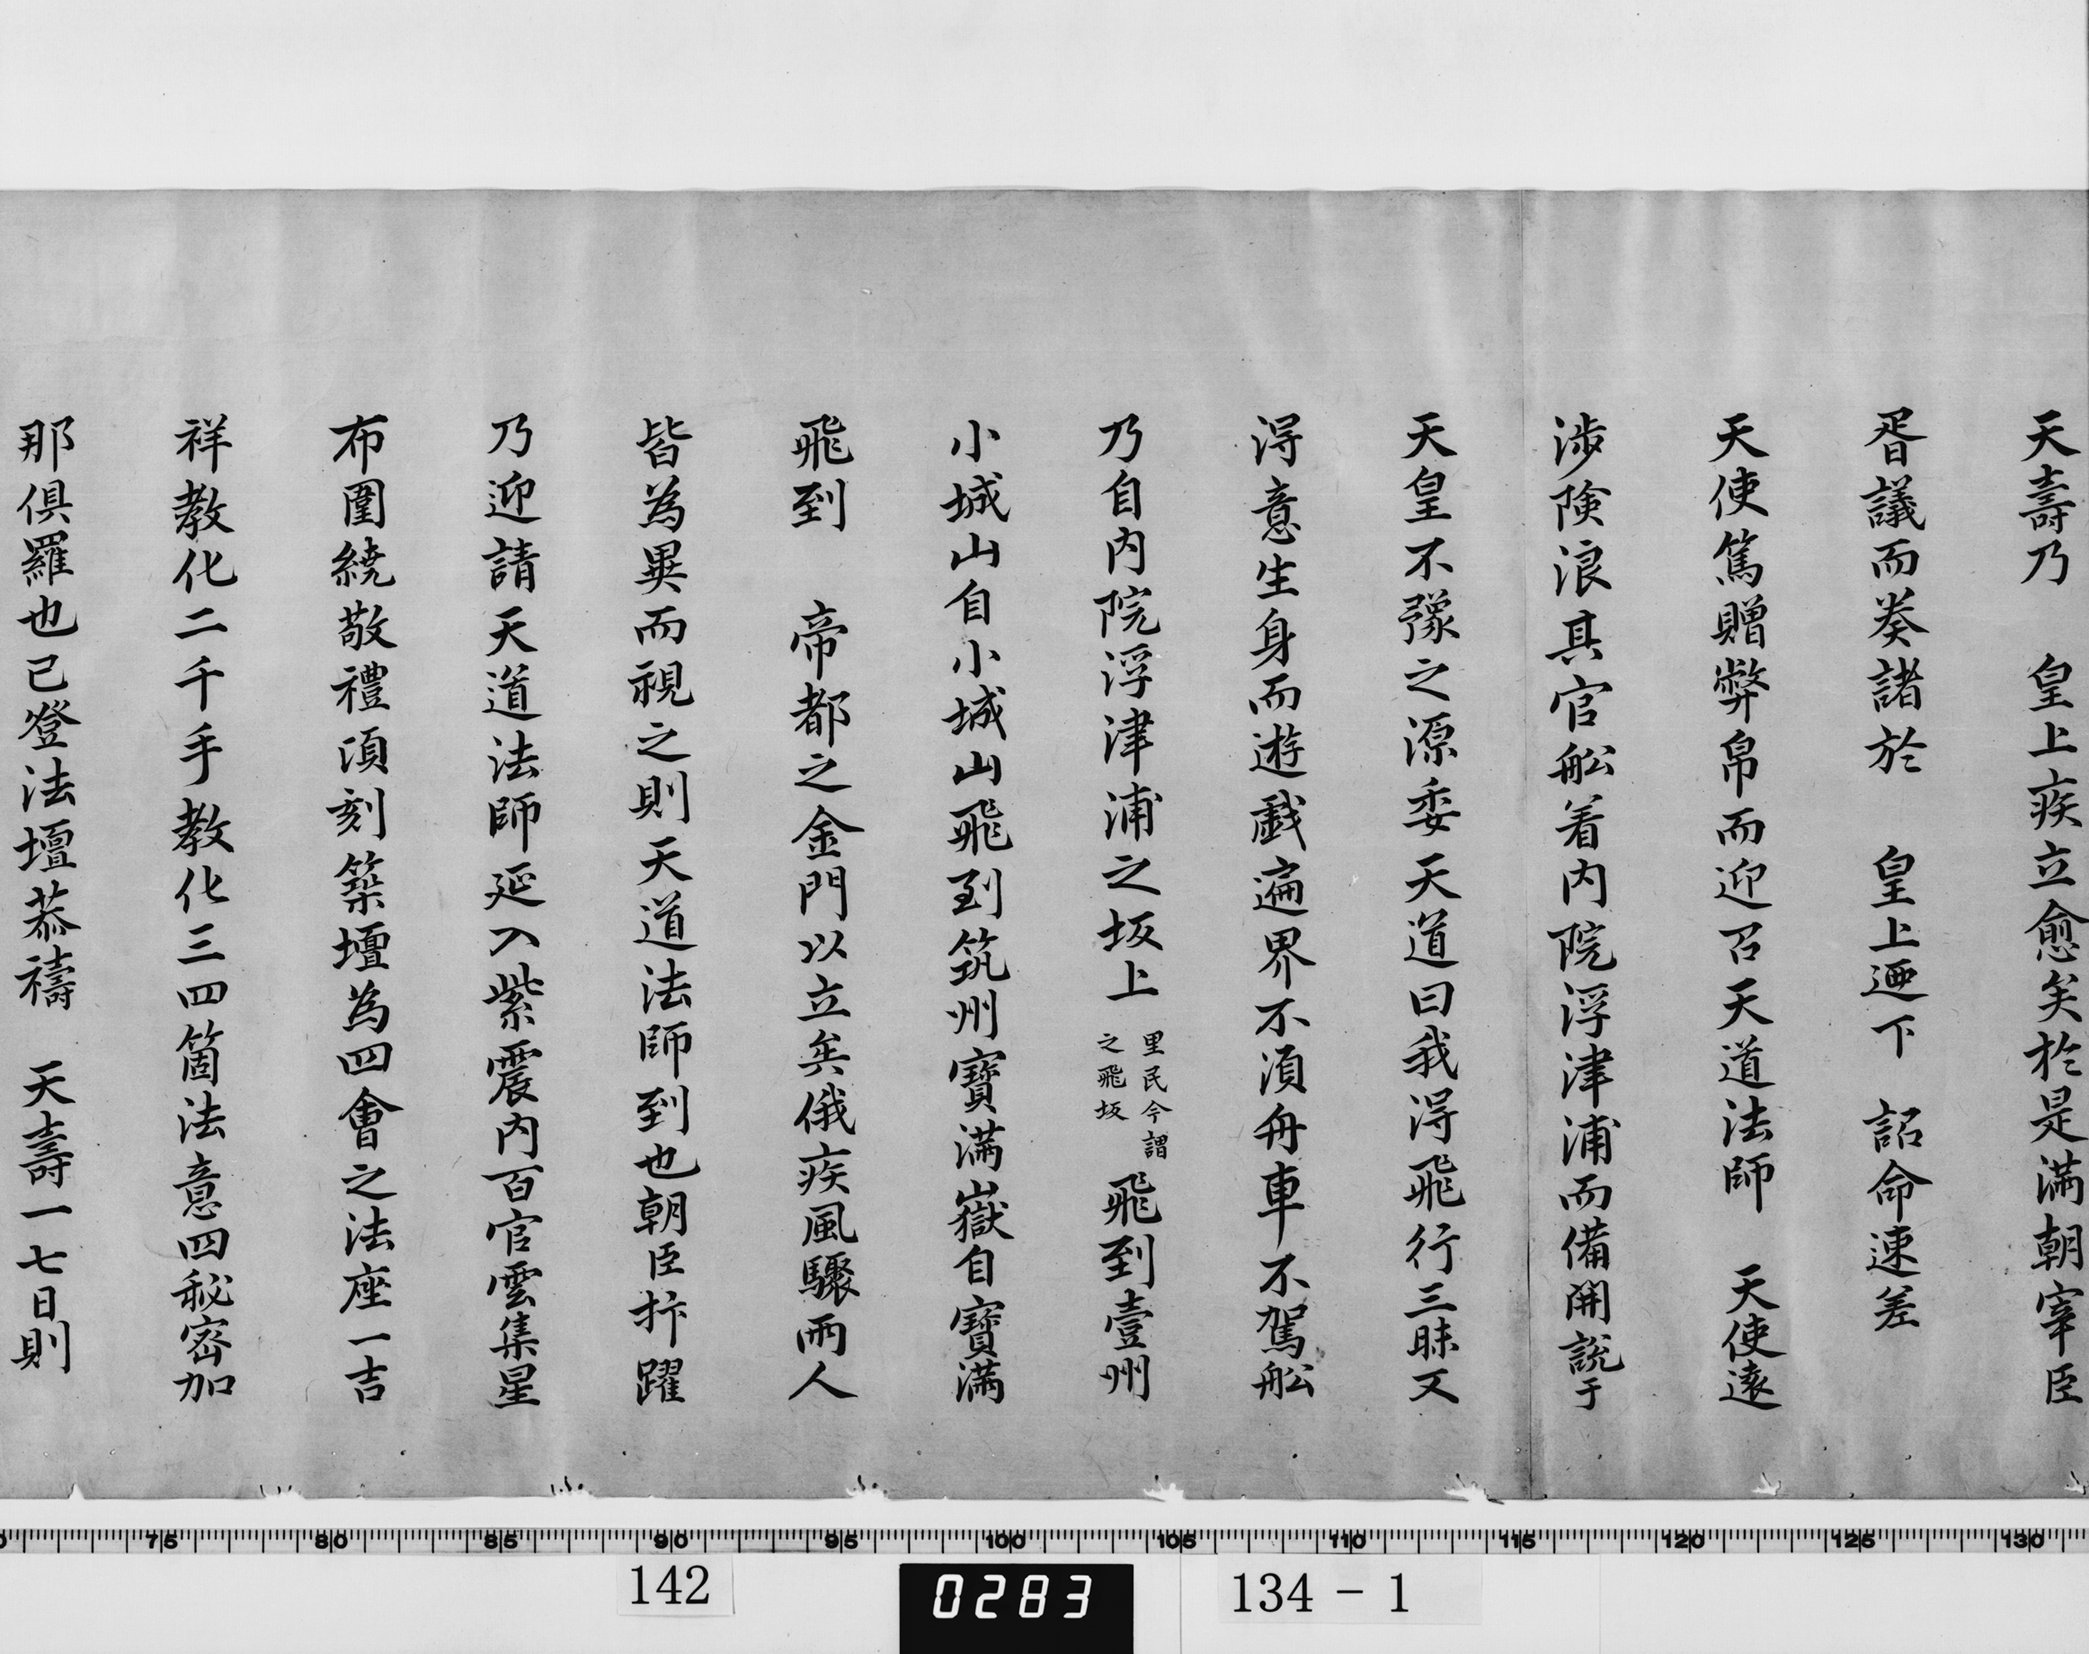 天壽乃　皇上疾立愈矣於是滿朝宰臣
胥議而奏諸於　皇上迺下　詔命速差
天使篤贈弊帛而迎召天道法師　天使遠
渉険浪其官舩着内院浮津浦而備開說于
天皇不豫之源委天道曰我得飛行三昧又
得意生身而遊戯遍界不湏舟車不駕舩
乃自内院浮津浦之坂上里民今謂之飛坂飛到壹州
小城山自小城山飛到筑州寶滿嶽自寶滿
飛到　帝都之金門以立矣俄疾風驟雨人
皆為異而視之則天道法師到也朝臣抃躍
乃迎請天道法師延入紫震内百官雲集星
布圍繞敬禮湏刻築壇為四會之法座一吉
祥教化二千手教化三四箇法意四秘密加
那俱羅也已登法壇恭禱　天壽一七日則
75 80 85 90 95 100 105 110 115 120 125 130
142
0283
134-1